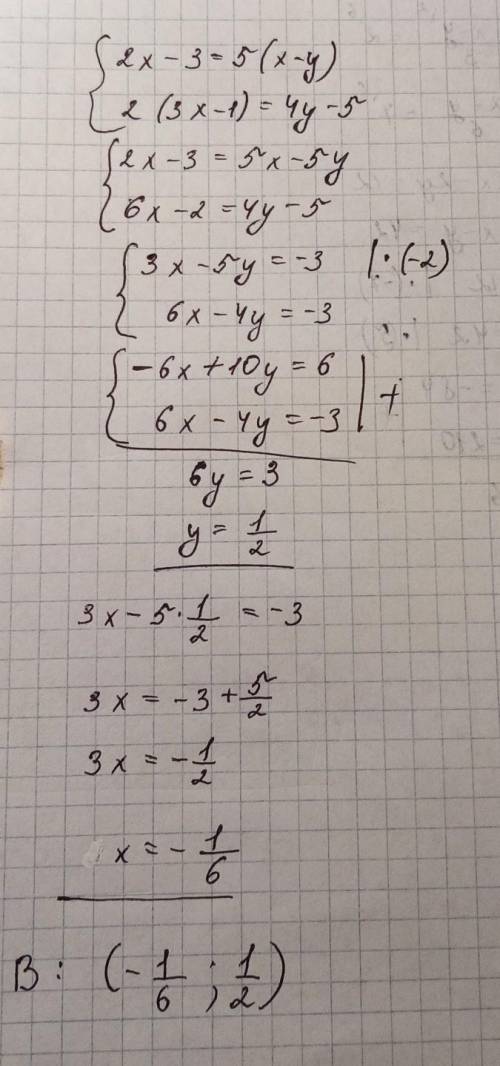 2x - 3 = 5(x-y)
2 (3x-1) = 4y-5
2x-3 = 5x-5y
6x-2 = 4y-5
3x-5y = -3 |·(-2)
6x-4y = -3
-6x+10y = 6
6x-4y = -3 | +
6y = 3
y = 1/2
3x - 5·1/2 = -3
3x = -3 + 5/2
3x = -1/2
x = -1/6
В: (-1/6 ; 1/2)